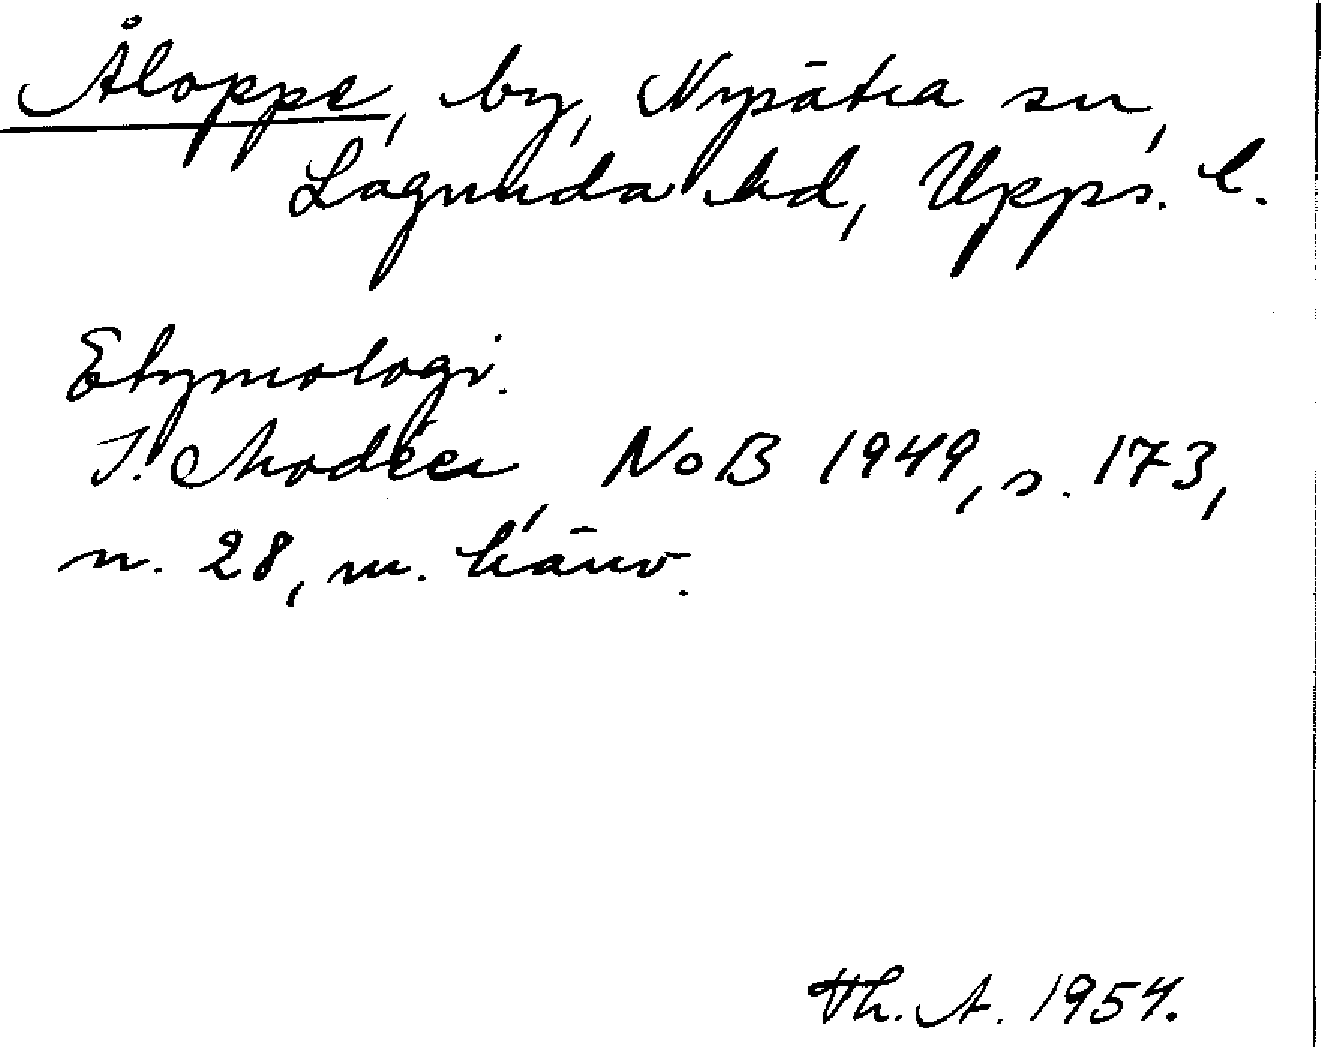 Åloppe, by, Nysätra sn,
Lagunda hd, Upps. l.
Etymologi.
I. Modéer, NoB 1949, s. 173,
n. 28, m. hänv.
Th. A. 1954.